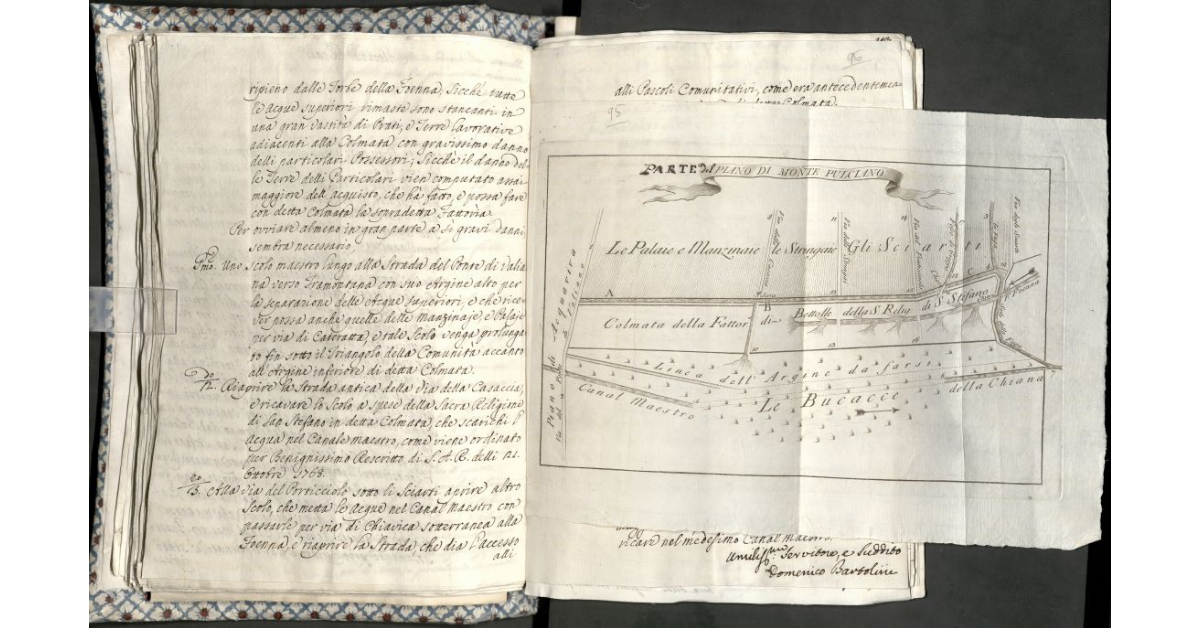 ripieno dalle Torbe della Foenna, Sicché tutte
le acque superiori rimaste sono stancanti in
una gran vastità di Prati, e Terre lavorative
adiacenti alla Colmata con gravissimo danno
delli particolari Possessori; Sicchè il danno del
le Terre delli Particolari vien computato assai
maggiore dell' acquisto, che hà fatto, e possa fare
con detta Colmata la sopradetta Fattoria.
Per ovviare almeno in gran parte a sì gravi danni
sembra necessario.
Pmo. Uno Scolo maestro lungo alla Strada del Ponte di Valia
na verso Tramontana con suo Argine alto per
la separazione delle Acque superiori, e che rice
ver possa anche quelle delle manzinaje, e Palaje
per via di Cateratta, e tale Scolo venga prolunga
to fin sotto il Triangolo della Comunità accanto
all' Argine inferiore di detta Colmata.
2. do Riaprire la Strada antica della Via della Casaccia,
e ricavare lo Scolo a spese della Sacra Religione
di San Stefano in detta Colmata, che scarichi l'
acqua nel Canale maestro, come viene ordinato
per Benignissimo Rescritto di S. A. R. delli 12.
Ottobre 1768.
3. zo Alla Via del Porticciolo sotto li Sciarti aprire altro
Scolo, che metta le Acque nel Canal Maestro con
passarle per via di Chiavica sotterranea alla
Foenna, e riaprire la Strada, che dia l'accesso
alli
96
alli Pascoli Comunitativi, come era antecedentemen
Colmata.
95
PARTE del PIANO DI MONTE PULCIANO
Le Palaie e Manzinaie
le Strengaie
Gli Sciarti
Via della Casaccia
Via delle Strengaie
Via del Porticciolo
Via degli Sciarti
A
B
C
Colmata della Fattor
di
Bettolle della S. Relig
di S. Stefano
F. Foenna
Piano di Acquaviva
e Valiano
Linea dell' Argine da farsi
Canal Maestro
della Chiana
Le Bucacce
ricare nel medesimo Canal maestro.
Umiliss.mo Servitore, e Suddito
Domenico Bartolini